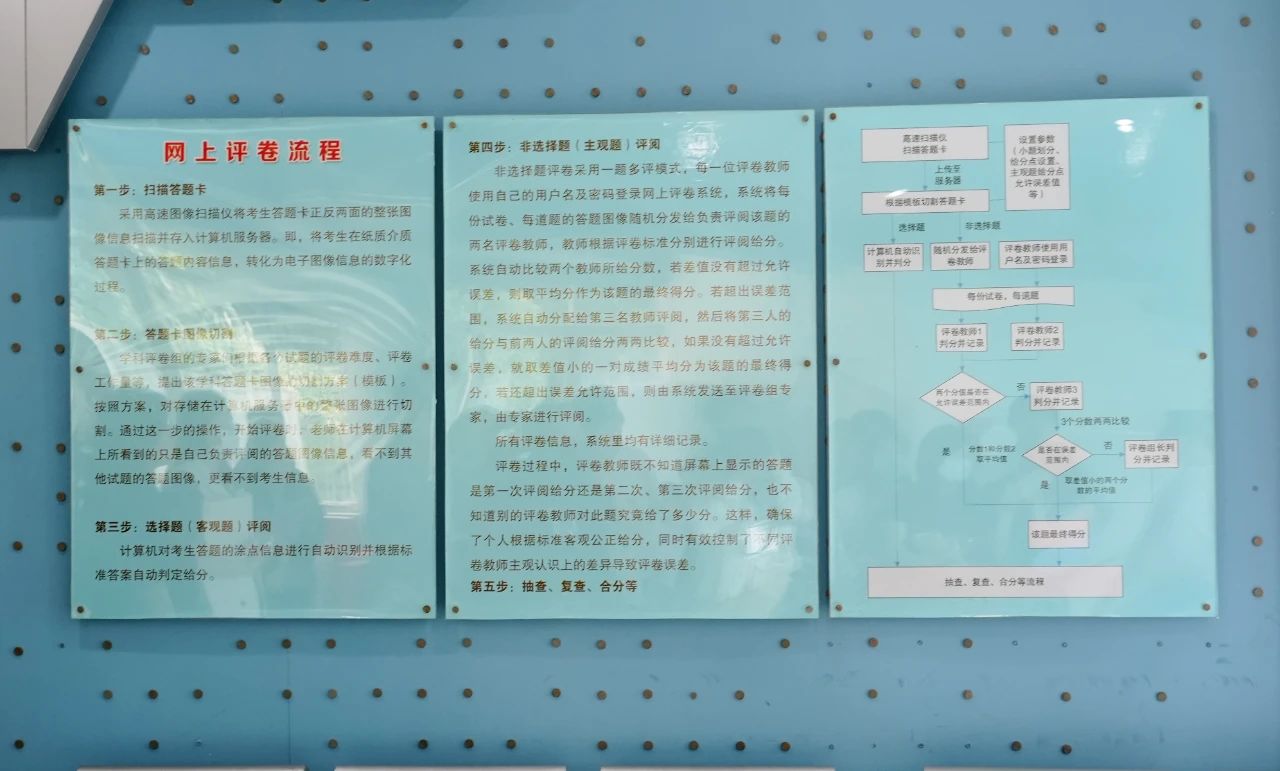 网上评卷流程
第一步：扫描答题卡
采用高速图像扫描仪将考生答题卡正反两面的整张图
像信息扫描并存入计算机服务器。即，将考生在纸质介质
答题卡上的答题内容信息，转化为电子图像信息的数字化
过程。
第二步：答题卡图像切割
学科评卷组的专家们根据各个试题的评卷难度、评卷
工作量等，提出该学科答题卡图像的切割方案（模板）。
按照方案，对存储在计算机服务器中的整张图像进行切
割。通过这一步的操作，开始评卷时，老师在计算机屏幕
上所看到的只是自己负责评阅的答题图像信息，看不到其
他试题的答题图像，更看不到考生信息。
第三步：选择题（客观题）评阅
计算机对考生答题的涂点信息进行自动识别并根据标
准答案自动判定给分。
第四步：非选择题（主观题）评阅
非选择题评卷采用一题多评模式，每一位评卷教师
使用自己的用户名及密码登录网上评卷系统，系统将每
份试卷、每道题的答题图像随机分发给负责评阅该题的
两名评卷教师，教师根据评卷标准分别进行评阅给分。
系统自动比较两个教师所给分数，若差值没有超过允许
误差，则取平均分作为该题的最终得分。若超出误差范
围，系统自动分配给第三名教师评阅，然后将第三人的
给分与前两人的评阅给分两两比较，如果没有超过允许
误差，就取差值小的一对成绩平均分为该题的最终得
分，若还超出误差允许范围，则由系统发送至评卷组专
家，由专家进行评阅。
所有评卷信息，系统里均有详细记录。
评卷过程中，评卷教师既不知道屏幕上显示的答题
是第一次评阅给分还是第二次、第三次评阅给分，也不
知道别的评卷教师对此题究竟给了多少分。这样，确保
了个人根据标准客观公正给分，同时有效控制了不同评
卷教师主观认识上的差异导致评卷误差。
第五步：抽查、复查、合分等
高速扫描仪
扫描答题卡
设置参数
（小题划分、
给分点设置、
主观题给分点
允许误差值
等）
上传至
服务器
根据模板切割答题卡
选择题
非选择题
计算机自动识
别并判分
随机分发给评
卷教师
评卷教师使用用
户名及密码登录
每份试卷，每道题
评卷教师1
判分并记录
评卷教师2
判分并记录
两个分值是否在
允许误差范围内
否
评卷教师3
判分并记录
3个分数两两比较
是
分数1和分数2
取平均值
是否在误差
范围内
否
评卷组长判
分并记录
是
取差值小的两个分
数的平均值
该题最终得分
抽查、复查、合分等流程